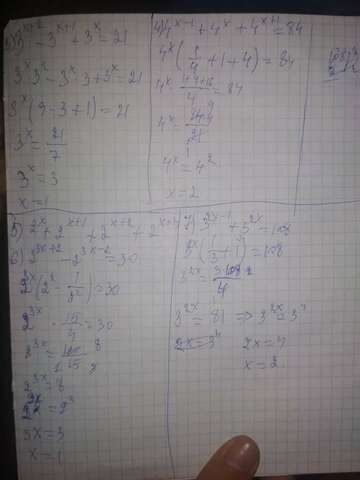 3) 3^{x+2} - 3^{x+1} + 3^x = 21
3^x 3^2 - 3^x · 3 + 3^x = 21
3^x (9 - 3 + 1) = 21
3^x = 21/7
3^x = 3
x = 1
4) 4^{x-1} + 4^x + 4^{x+1} = 84
4^x (1/4 + 1 + 4) = 84
4^x = 84·4/21
4^x = 4^2
x = 2
5) 2^x + 2^{x+1} + 2^{x+2} + 2^{x+3}
6) 2^{3x+2} - 2^{3x-2} = 30
2^{3x} (2^2 - 1/2^2) = 30
2^{3x} · 15/4 = 30
2^{3x} = 8
2^{3x} = 2^3
3x = 3
x = 1
7) 3^{2x-1} + 3^{2x} = 108
3^{2x} (1/3 + 1) = 108
3^{2x} = 3·108/4
3^{2x} = 81 => 3^{2x} = 3^4
2x = 3^4
2x = 4
x = 2